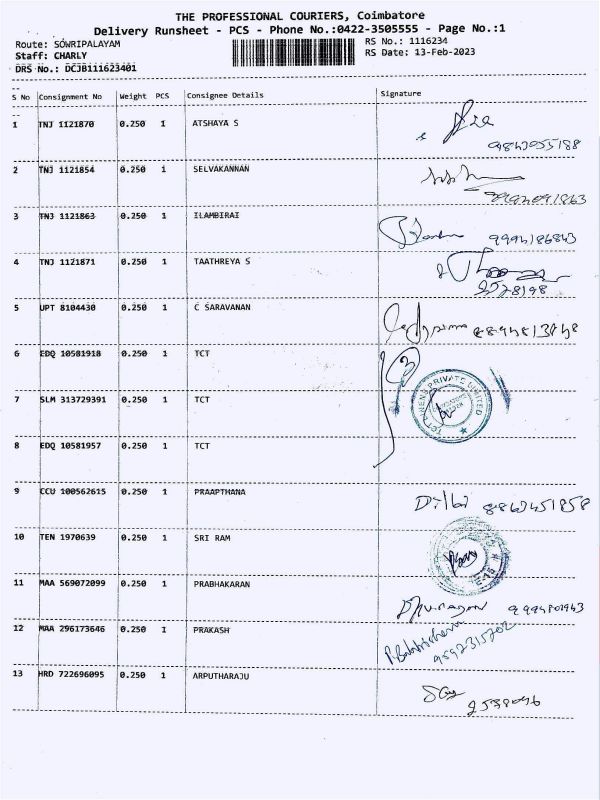 THE PROFESSIONAL COURIERS, Coimbatore
Delivery Runsheet - PCS - Phone No.:0422-3505555 - Page No.:1
Route: SOWRIPALAYAM RS No.: 1116234
Staff: CHARLY RS Date: 13-Feb-2023
DRS No.: DCJB111623401
S No Consignment No Weight PCS Consignee Details Signature
1 TNJ 1121870 0.250 1 ATSHAYA S
2 TNJ 1121854 0.250 1 SELVAKANNAN
3 TNJ 1121863 0.250 1 ILAMBIRAI
9994186843
4 TNJ 1121871 0.250 1 TAATHREYA S
5 UPT 8104430 0.250 1 C SARAVANAN
6 EDQ 10581918 0.250 1 TCT
3
7 SLM 313729391 0.250 1 TCT
PRIVATE LIMITED
8 EDQ 10581957 0.250 1 TCT
9 CCU 100562615 0.250 1 PRAAPTHANA
10 TEN 1970639 0.250 1 SRI RAM
11 MAA 569072099 0.250 1 PRABHAKARAN
12 MAA 296173646 0.250 1 PRAKASH
13 HRD 722696095 0.250 1 ARPUTHARAJU